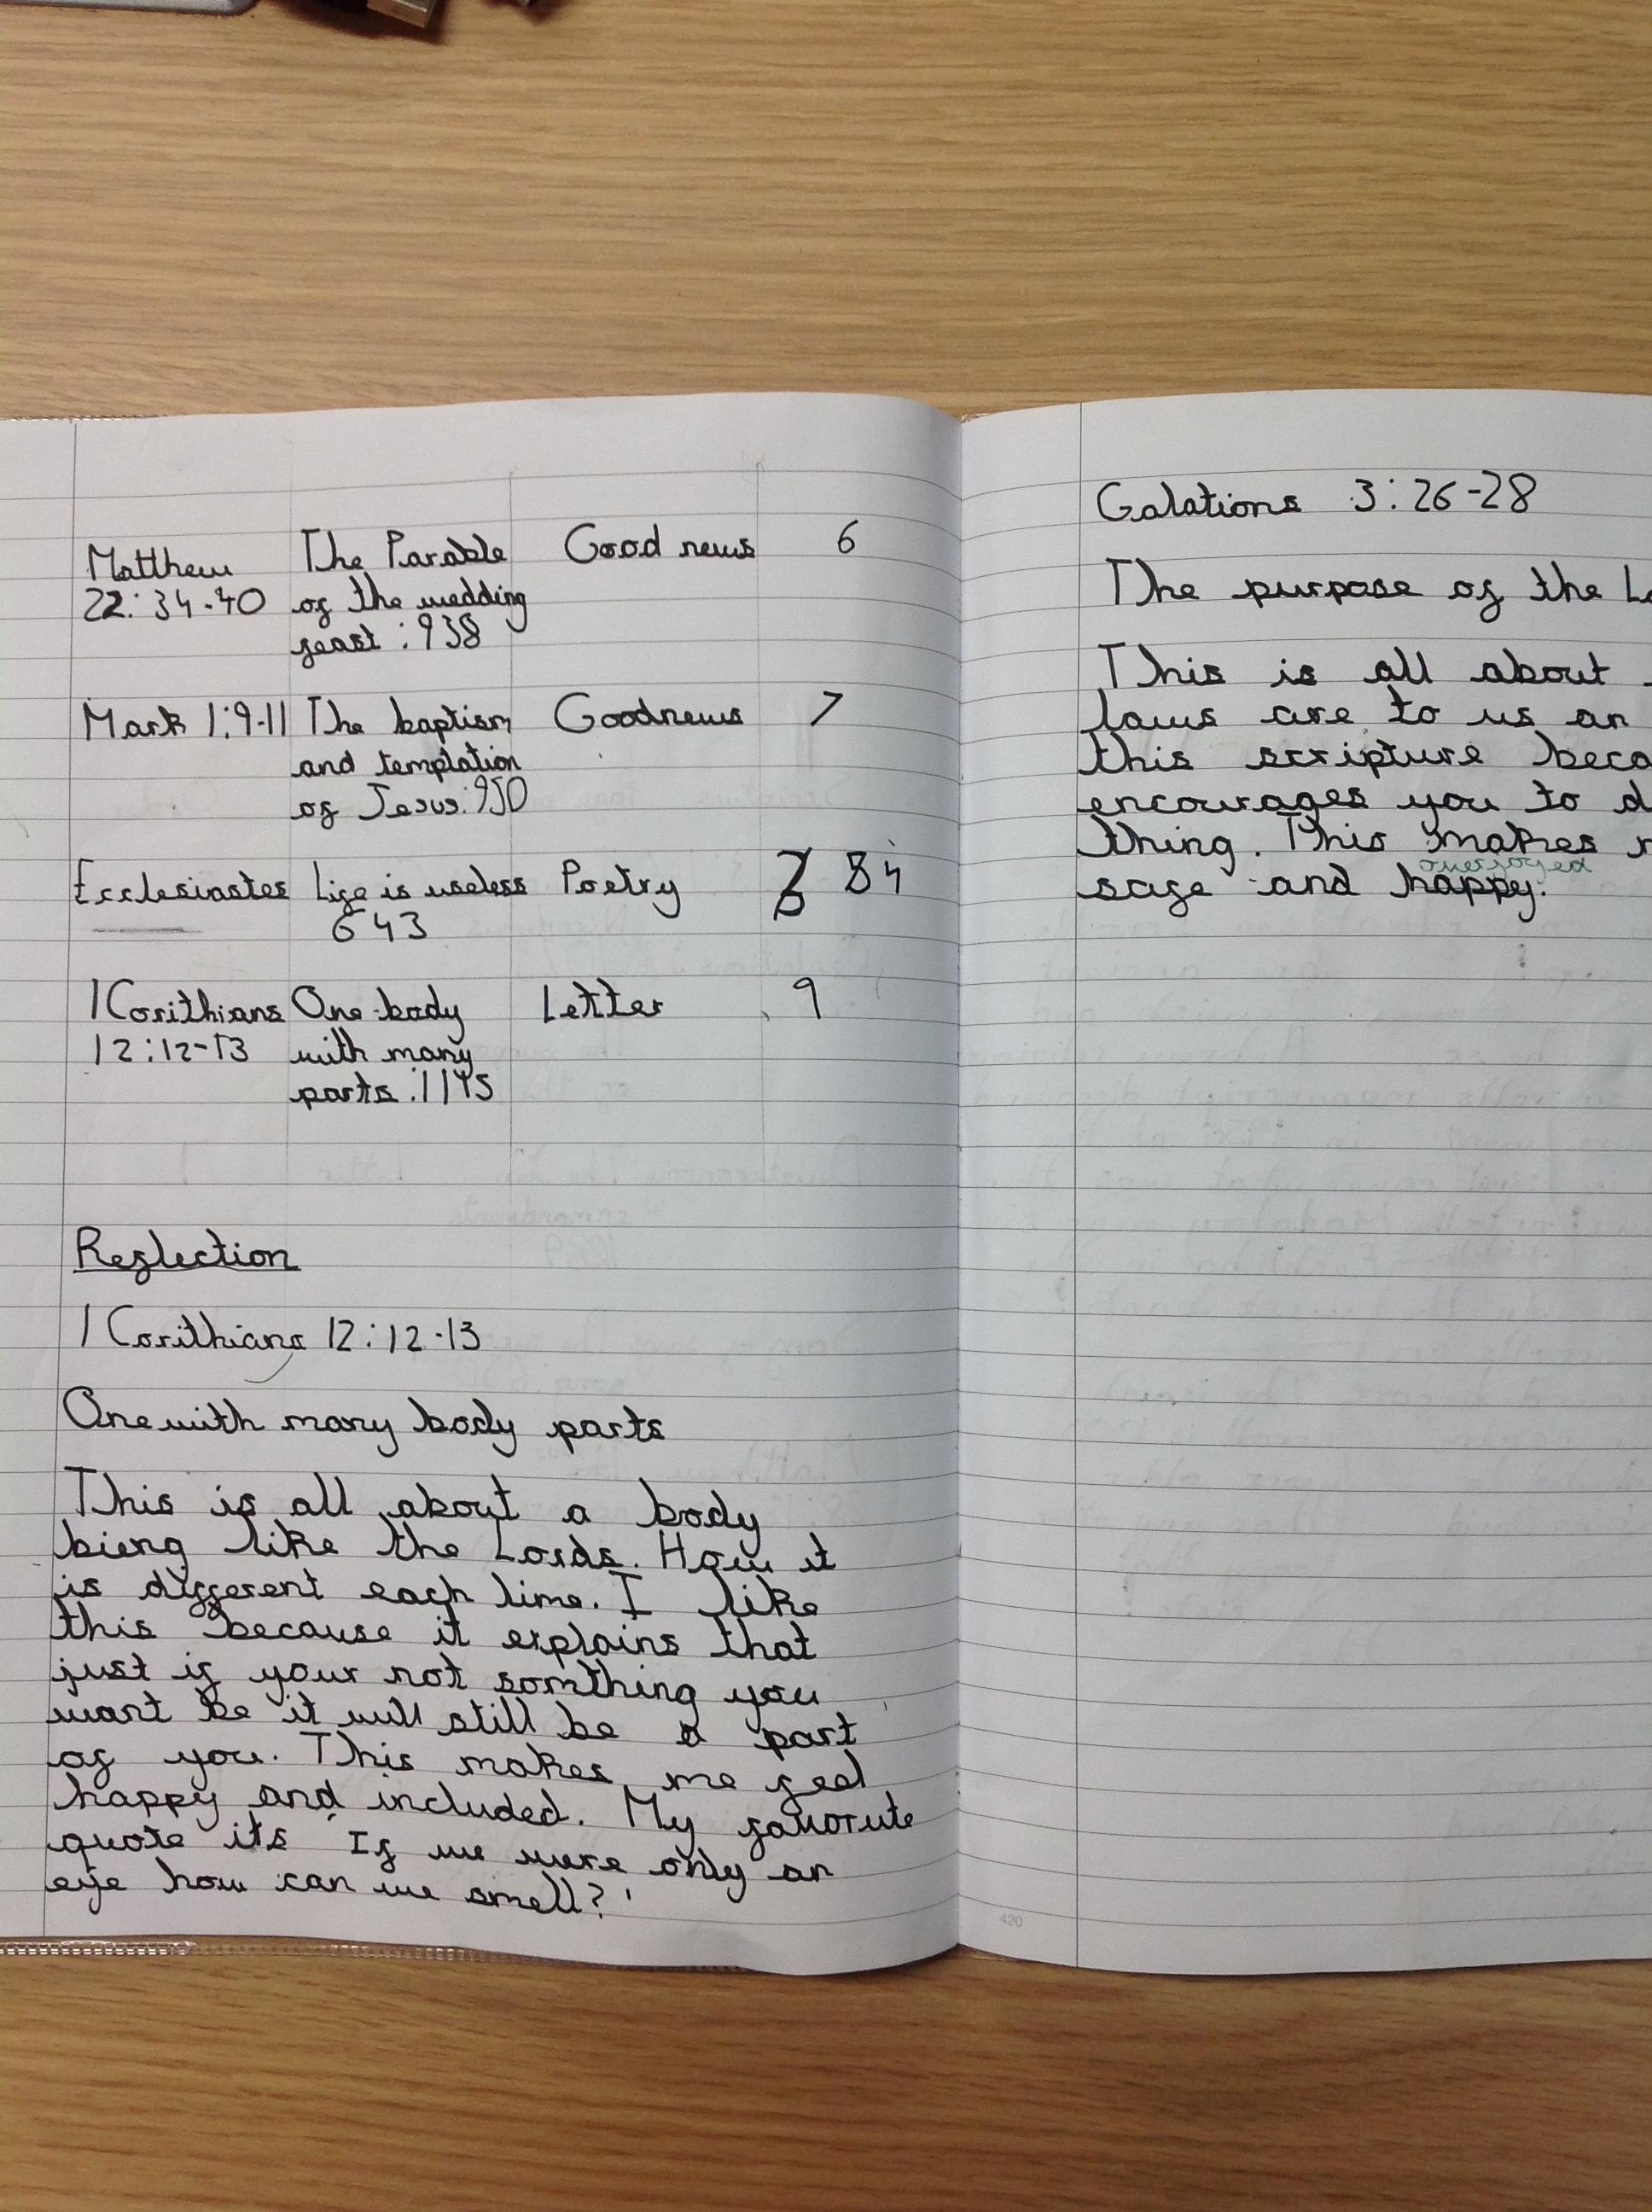 Matthew The Parable Good news 6
22:34-40 of the wedding
feast : 938
Mark 1:9-11 The baptism Goodnews 7
and temptation
of Jesus: 950
Ecclesiastes Life is useless Poetry 8 4
643
1 Corithians One body Letter 9
12:12-13 with many
parts : 1145
Reflection
1 Corithians 12:12-13
One with many body parts
This is all about a body
bieng like the Lords. How it
is different each time. I like
this because it explains that
just if your not somthing you
want be it will still be a part
of you. This makes me feel
happy and included. My favorute
quote its 'If we were only an
eye how can we smell?'
Galations 3:26-28
The purpose of the La
This is all about
laws are to us an
this scripture beca
encourages you to d
thing. This makes
overjoyed
safe and happy.
420